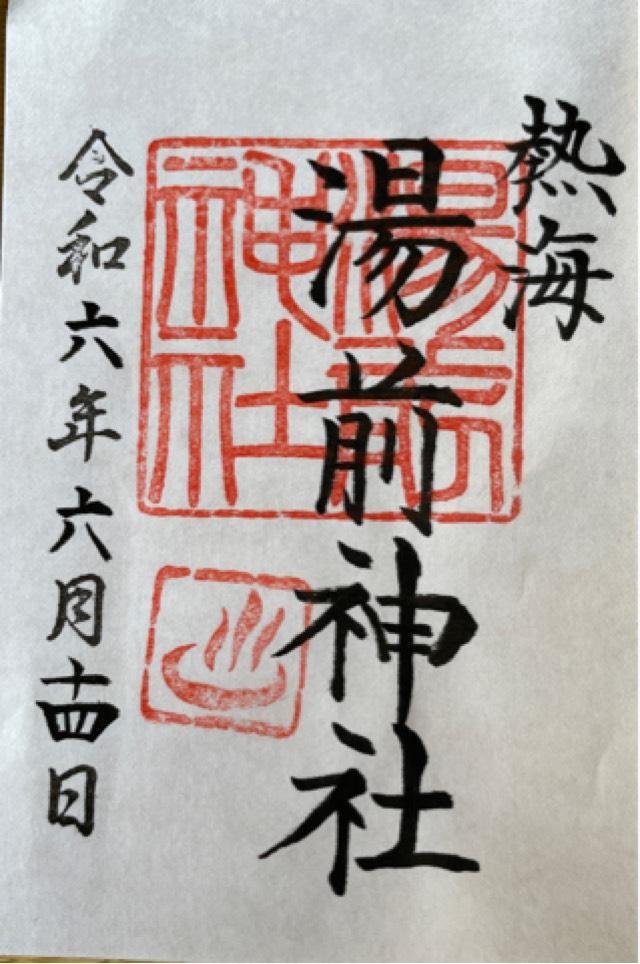 熱海
湯前神社
湯前神社
令和六年六月十四日